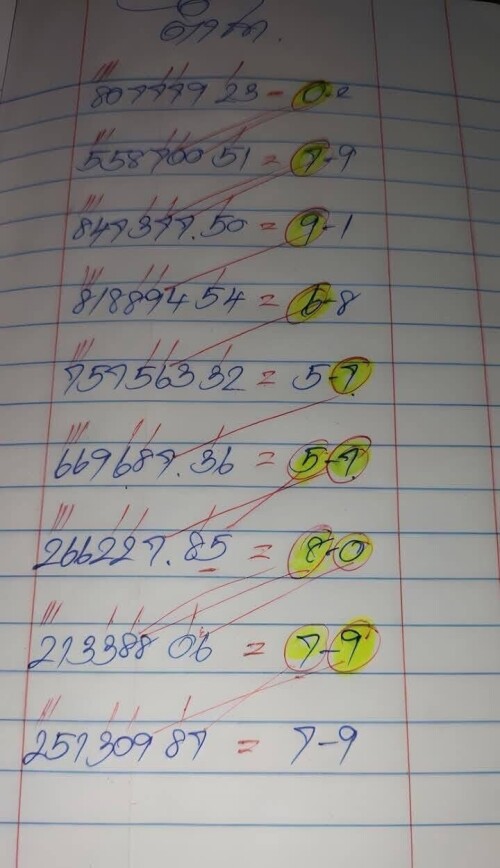 807779 23 - 0-2
558700 51 = 7-9
847377.50 = 9-1
818894 54 = 6-8
757563 32 = 5-7
669687.36 = 5-7
266227.85 = 8-0
213388 06 = 7-9
251309 87 = 7-9